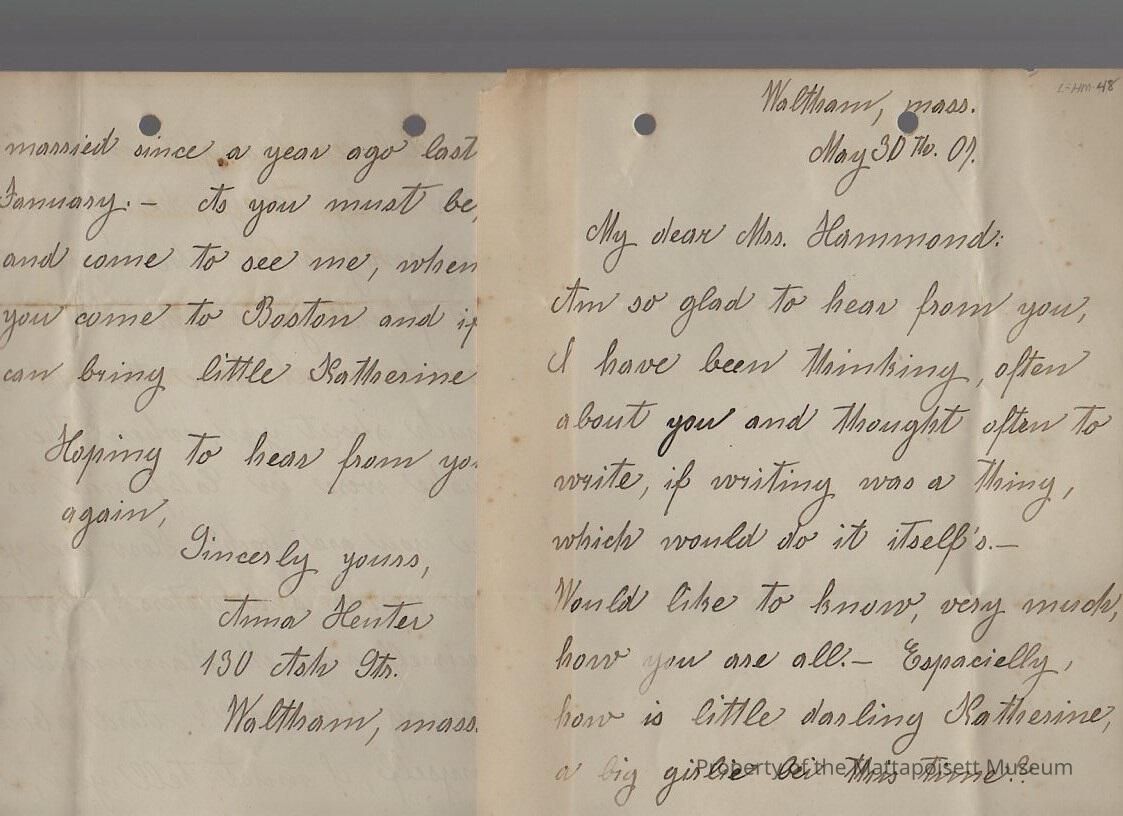 L-HM-48
Waltham, mass.
May 30 th. 07.
My dear Mrs. Hammond:
Am so glad to hear from you,
I have been thinking, often
about you and thought often to
write, if writing was a thing,
which would do it itself's.—
Would like to know, very much,
how you are all.— Espacielly,
how is little darling Katherine,
a big girlie be this time!?
married since a year ago last
January.— As you must be,
and come to see me, when
you come to Boston and if
can bring little Katherine
Hoping to hear from yo
again,
Sincerly yours,
Anna Heuter
130 Ash Str.
Waltham, mass.
Property of the Mattapoisett Museum